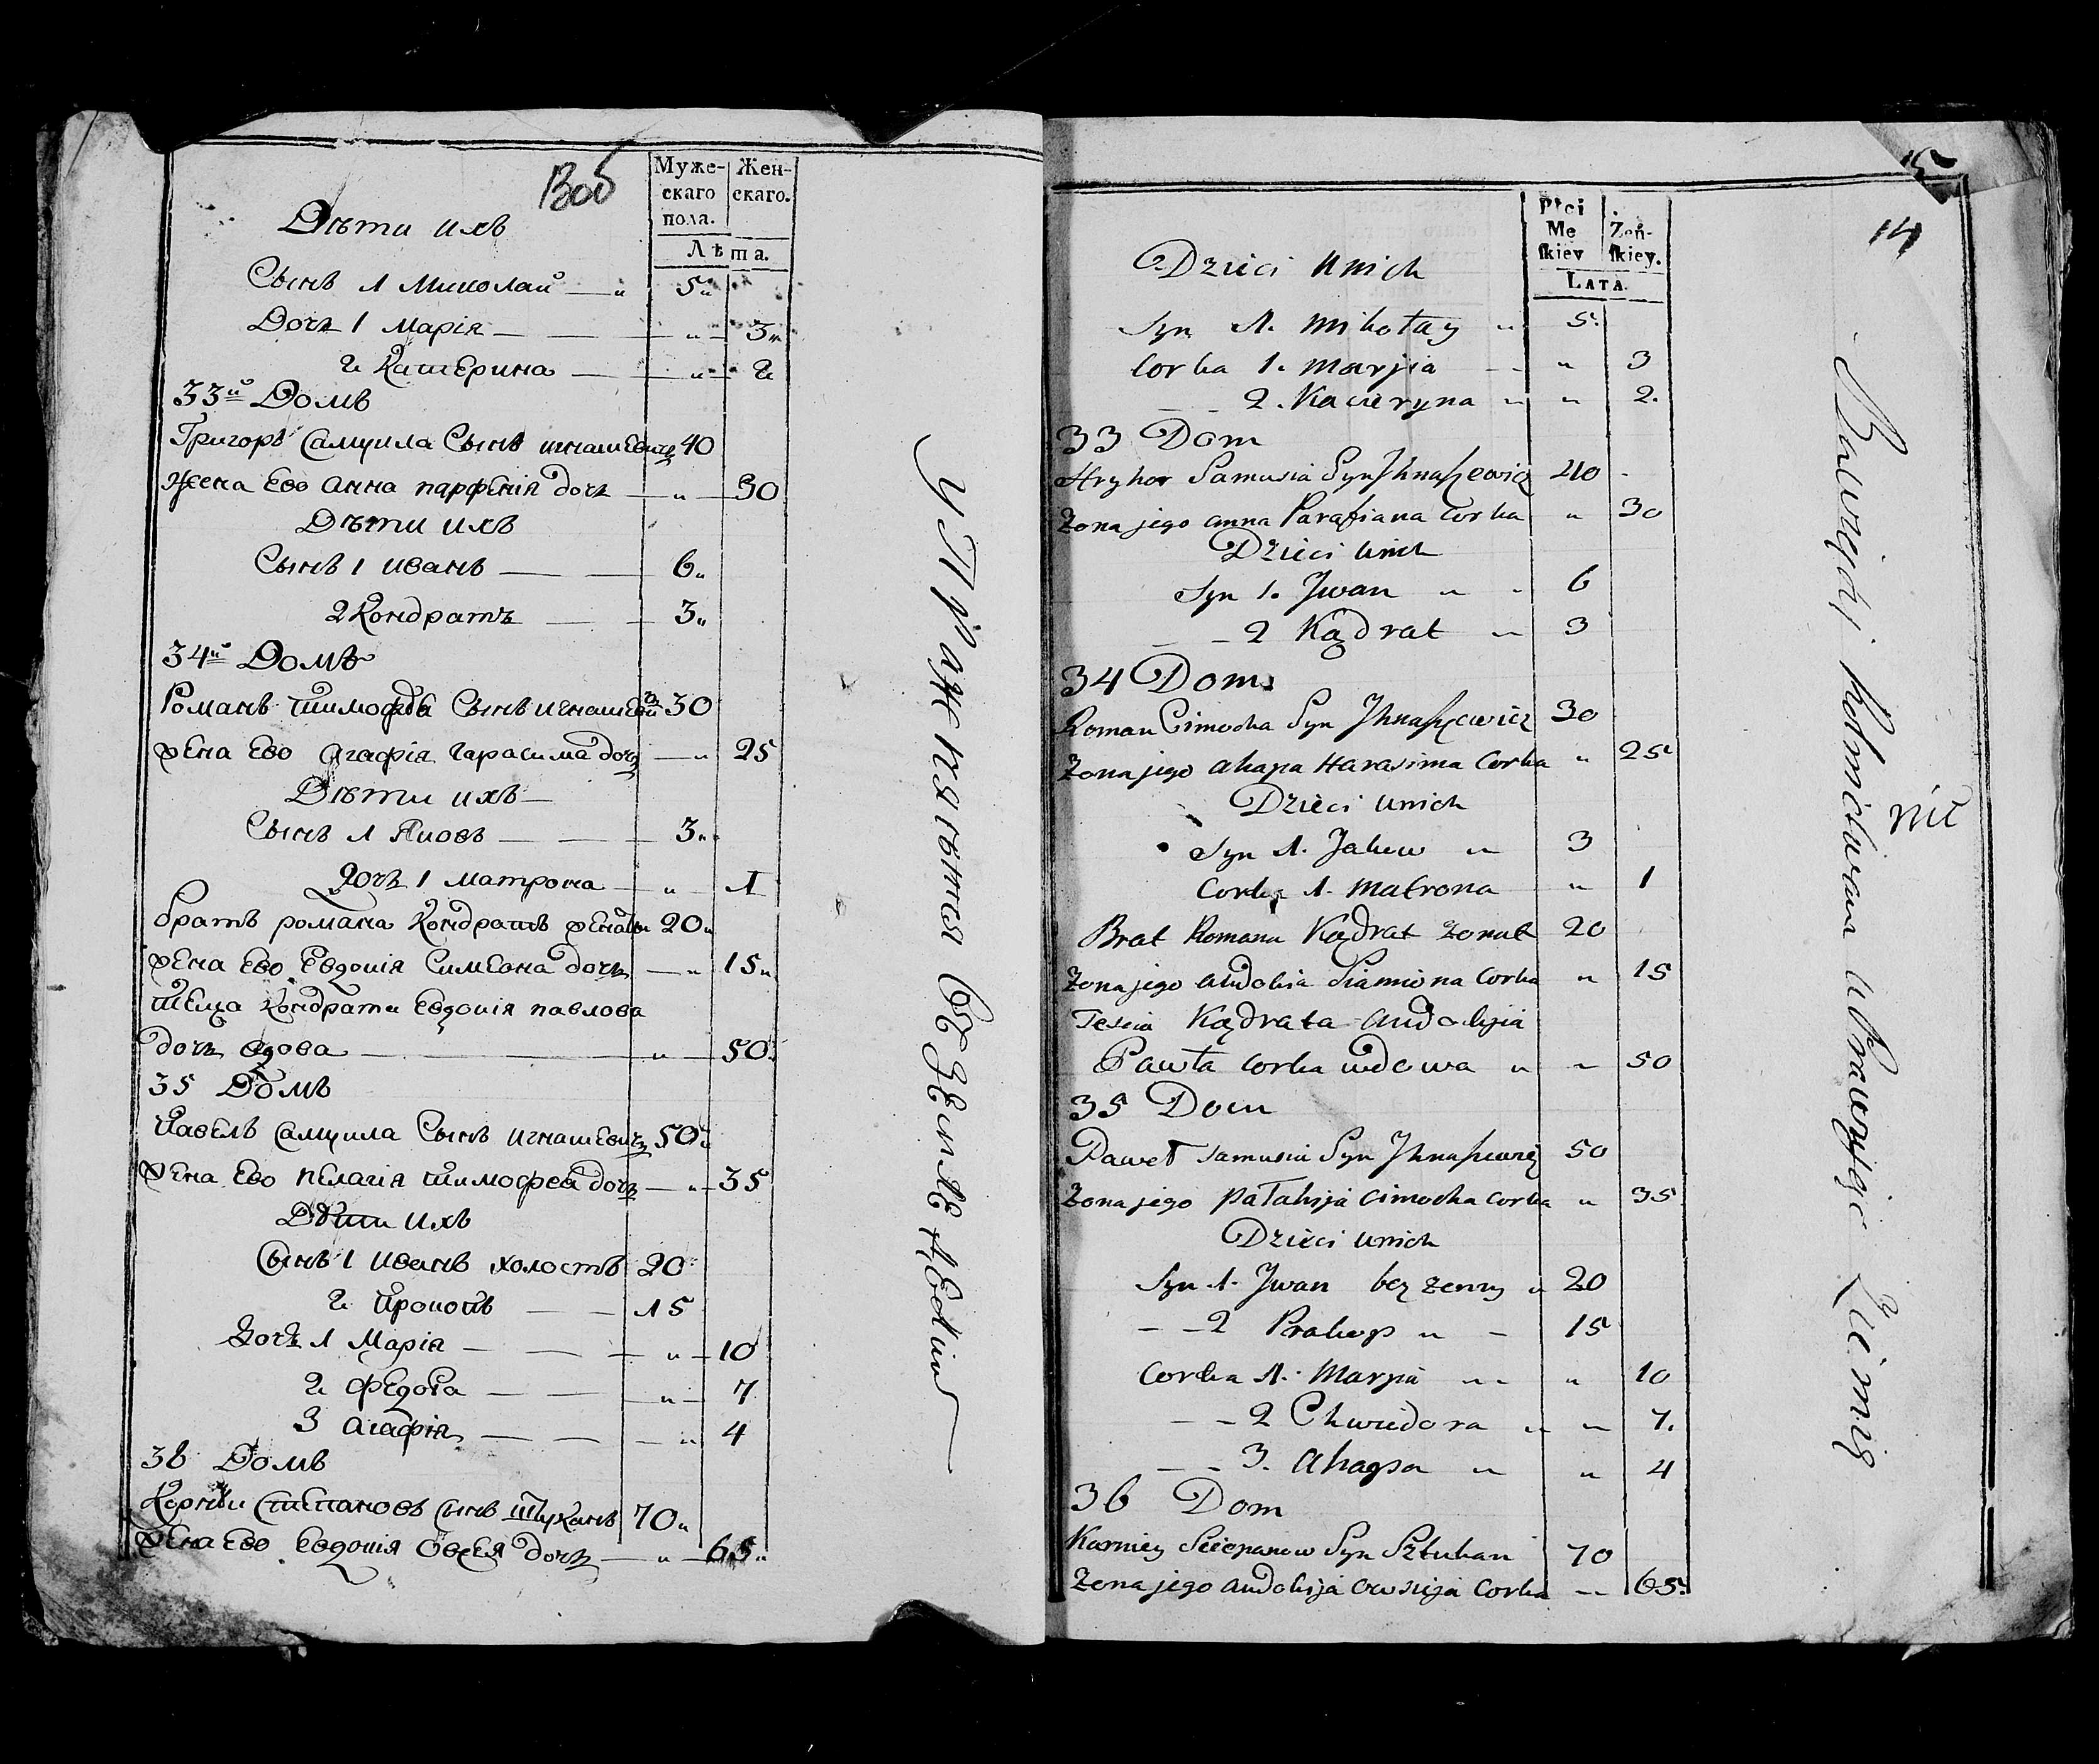 Воб
Муже-
скаго
пола.
Жен-
скаго.
Лѣта.
Дѣти ихъ
Сынъ 1 Миколай — " 5"
Дочь 1 Марія — " — 3"
2 Катерина — " — 2
33й Домъ
Григоръ Самуила Сынъ игнашевичъ 40
Жена Ево Анна парфенія дочь — " — 30
Дѣти ихъ
Сынъ 1 иванъ — 6"
2 Кондратъ — 3"
34й Домъ
Романъ тимофѣя Сынъ игнашевич 30
жена Ево Агафія Гарасима дочь — " 25
Дѣти ихъ —
Сынъ 1 Яковъ — 3"
Дочь 1 матрона — " 1
братъ романа Кондратъ женатъ 20"
жена Ево Евдокія Симеона дочь — " 15"
теща Кондрата Евдокія павлова
дочь вдова — " — 50"
35 Домъ
Павелъ Самуила Сынъ игнашевичъ 50"
жена Ево пелагія тимофея дочь — " — 35
Дѣти ихъ
Сынъ 1 иванъ холостъ 20
2 Прокопъ — 15
Дочь 1 Марія — " — 10
2 федора — " — 7
3 агафія — " 4
36 Домъ
Корнѣй Степановъ сынъ Штукань 70"
жена Ево Евдокія Овсея дочь — " — 65"
упражняются въ земледеліи
15
14
Płci
Mę
skiey
Żeń-
skiey.
LATA.
Dzieci unich
Syn 1. Mikołay " 5.
Corka 1. Marjia " 3
2. Kacieryna " " 2.
33 Dom
Hryhor Samusia Syn Jhnaszewicz 40
Zona jego anna Parafiana Corka " 30
Dzieci unich
Syn 1. Jwan " 6
2 Kądrat " 3
34 Dom.
Roman Cimocha Syn Jhnaszewicz 30
Zona jego ahapa Harasima Corka " 25
Dzieci unich
Syn 1. Jakuw " 3
Corka 1. Matrona " 1
Brat Romana Kądrat zonat 20
Zona jego audokia Siamiona Corka " 15
Tescia Kądrata audokija
Pawła corka wdowa " " 50
35 Dom
Paweł samusia Syn Jhnaszewicz 50
Zona jego Pałahija cimocha corka " 35
Dzieci unich
Syn 1. Jwan bez zenny " 20
2 Prakop " 15
Corka 1. Maryia " 10
2 Chwiedora " " 7.
3. ahapa " " 4
36 Dom
Karniey Sciepanow Syn Sztukan 70
Zona jego audokija awsieja Corka " 65.
nic